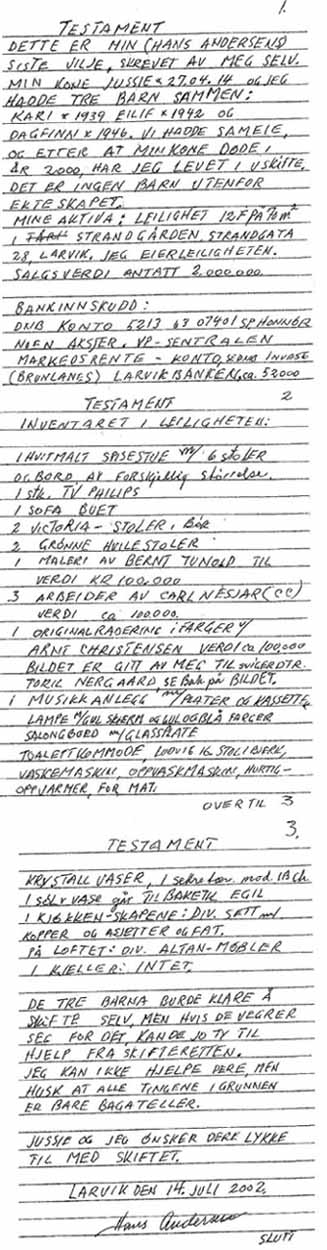 1.
TESTAMENT
DETTE ER MIN (HANS ANDERSENS)
SISTE VILJE, SKREVET AV MEG SELV.
MIN KONE JUSSIE * 27.04.14 OG JEG
HADDE TRE BARN SAMMEN:
KARI * 1939 EILIF * 1942 OG
DAGFINN * 1946. VI HADDE SAMEIE,
OG ETTER AT MIN KONE DØDE I
ÅR 2000, HAR JEG LEVET I USKIFTE.
DET ER INGEN BARN UTENFOR
EKTESKAPET.
MINE AKTIVA: LEILIGHET 12F PÅ 70 m²
I STRANDGÅRDEN, STRANDGATA
28, LARVIK, JEG EIER LEILIGHETEN.
SALGSVERDI ANTATT 2.000.000
BANKINNSKUDD:
DNB KONTO 5213 63 07401 SP HONNØR
NOEN AKSJER, VP-SENTRALEN
MARKEDSRENTE - KONTO,
(BRUNLANES) LARVIKBANKEN, ca. 52000
TESTAMENT 2
INVENTARET I LEILIGHETEN:
1 HVITMALT SPISESTUE m/ 6 STOLER
OG BORD AV FORSKJELLIG størrelse.
1 stk. TV PHILIPS
1 SOFA BUET
2 VICTORIA - STOLER,
2 GRØNNE HVILESTOLER
1 MALERI AV BERNT TUNOLD TIL
VERDI KR 100.000
3 ARBEIDER AV CARL NESJAR (CC)
VERDI ca 100.000.
1 ORIGINALRADERING i FARGER v/
ARNT CHRISTENSEN VERDI ca 100,000
BILDET ER GITT AV MEG TIL SVIGERDTR.
TORIL NERGAARD SE Bak på BILDET.
1 MUSIKKANLEGG m/PLATER OG KASSETTE,
LAMPE m/GUL SKJERM OG GUL OG BLÅ FARGER
SALONGBORD m/GLASSPLATE
TOALETTKOMMODE, LODVIG 16 STOL I BJERK,
VASKEMASKIN, OPPVASKMASKIN, HURTIG-
OPPVARMER, FOR MAT.
OVER TIL 3
3.
TESTAMENT
KRYSTALL VASER, 1
1 SØLV VASE går TILBAKE TIL EGIL
I KJØKKEN-SKAPENE: DIV. SETT m/
KOPPER OG ASJETTER OG FAT.
PÅ LOFTET: DIV. ALTAN-MØBLER
I KJELLER: INTET.
DE TRE BARNA BURDE KLARE Å
SKIFTE SELV, MEN HVIS DE VEGRER
SEG FOR DET, KAN DE JO TY TIL
HJELP FRA SKIFTERETTEN.
JEG KAN IKKE HJELPE DERE, MEN
HUSK AT ALLE TINGENE I GRUNNEN
ER BARE BAGATELLER.
JUSSIE OG JEG ØNSKER DERE LYKKE
TIL MED SKIFTET.
LARVIK DEN 14. JULI 2002.
Hans Andersen
SLUTT